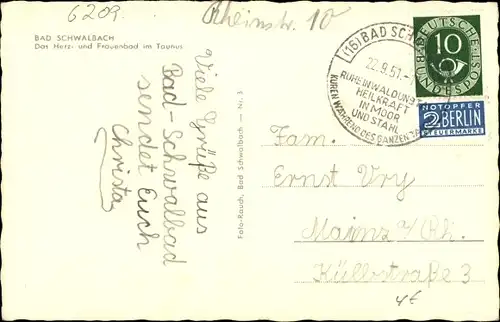 6209.
Rheinstr. 10
BAD SCHWALBACH
Das Herz- und Frauenbad im Taunus
Viele Grüße aus
Bad-Schwalbach
sendet Euch
Christa
Foto-Rauch, Bad Schwalbach — Nr. 5
(16) BAD SCH
22.9.51.-
RUHE IN WALDUNG
HEILKRAFT
IN MOOR
UND STAHL
KUREN WÄHREND DES GANZEN JAHRES
DEUTSCHE BUNDESPOST
10
NOTOPFER
2 BERLIN
STEUERMARKE
Fam.
Ernst Ury
Mainz a/Rh.
Küllostraße 3
4€